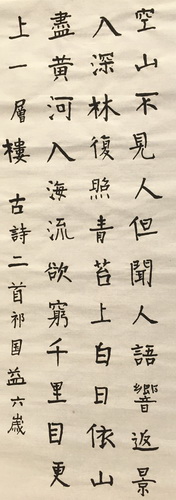 空山不見人但聞人語響返景
入深林復照青苔上白日依山
盡黃河入海流欲窮千里目更
上一層樓 古詩二首祁国益六歲